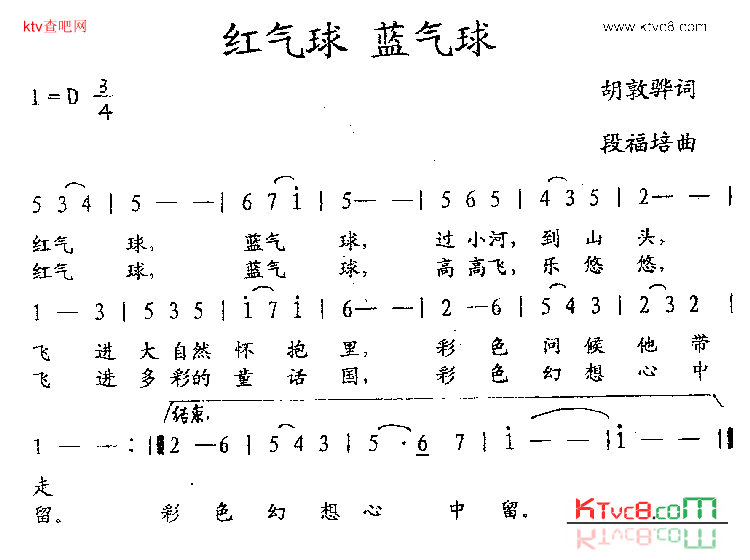 ktv查吧网
www.ktvc8.com
红气球 蓝气球
1=D 3/4
胡敦骅词
段福培曲
5 3 4 | 5 — — | 6 7 i | 5 — — | 5 6 5 | 4 3 5 | 2 — — |
红气 球, 蓝气 球, 过小河, 到山头,
红气 球, 蓝气 球, 高高飞, 乐悠悠,
1 — 3 | 5 3 5 | i 7 i | 6 — — | 2 — 6 | 5 4 3 | 2 3 2 |
飞 进大自然怀抱里, 彩 色问候他带
飞 进多彩的童话国, 彩 色幻想心中
结束.
1 — — :‖ 2 — 6 | 5 4 3 | 5 · 6 7 | i — — | i — — ‖
走
留。 彩色幻想心 中留。
KTvc8.com